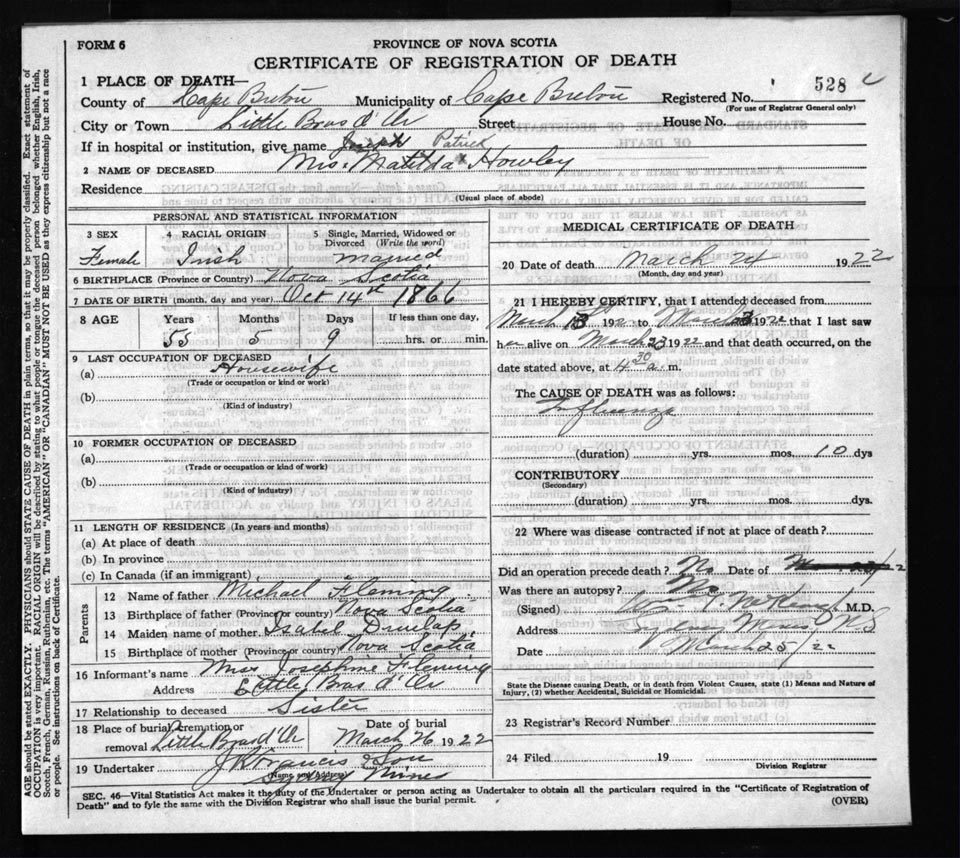 FORM 6
PROVINCE OF NOVA SCOTIA
CERTIFICATE OF REGISTRATION OF DEATH
528
1 PLACE OF DEATH—
County of Cape Breton Municipality of Cape Breton Registered No.
(For use of Registrar General only)
City or Town Little Bras d'Or Street House No.
If in hospital or institution, give name
Joseph Patrick
2 NAME OF DECEASED Mrs. Matilda Howley
Residence
(Usual place of abode)
PERSONAL AND STATISTICAL INFORMATION
3 SEX Female
4 RACIAL ORIGIN Irish
5 Single, Married, Widowed or Divorced (Write the word) married
6 BIRTHPLACE (Province or Country) Nova Scotia
7 DATE OF BIRTH (month, day and year) Oct 14th 1866
8 AGE Years Months Days If less than one day,
55 5 9 hrs. or min.
9 LAST OCCUPATION OF DECEASED
(a) Housewife
(Trade or occupation or kind or work)
(b)
(Kind of industry)
10 FORMER OCCUPATION OF DECEASED
(a)
(Trade or occupation or kind of work)
(b)
(Kind of industry)
11 LENGTH OF RESIDENCE (In years and months)
(a) At place of death
(b) In province
(c) In Canada (if an immigrant)
Parents
12 Name of father Michael Fleming
13 Birthplace of father (Province or country) Nova Scotia
14 Maiden name of mother Isabel Dunlap
15 Birthplace of mother (Province or country) Nova Scotia
16 Informant's name Miss Josephine Fleming
Address Little Bras d'Or
17 Relationship to deceased Sister
18 Place of burial, cremation or removal Little Bras d'Or
Date of burial March 26 1922
19 Undertaker & Son
(Name and address) Sydney Mines
MEDICAL CERTIFICATE OF DEATH
20 Date of death March 24 1922
(Month, day and year)
21 I HEREBY CERTIFY, that I attended deceased from
March 13 192 to March 23 1922 that I last saw
her alive on March 23 1922 and that death occurred, on the
date stated above, at 4 30 a. m.
The CAUSE OF DEATH was as follows:
Influenza
(duration) yrs. mos. 10 dys
CONTRIBUTORY
(Secondary)
(duration) yrs. mos. dys.
22 Where was disease contracted if not at place of death?
Did an operation precede death? No Date of
Was there an autopsy? No
(Signed) M.D.
Address Sydney Mines NS
Date March 25/22
State the Disease causing Death, or in death from Violent Causes, state (1) Means and Nature of
Injury, (2) whether Accidental, Suicidal or Homicidal.
23 Registrar's Record Number
24 Filed 19
Division Registrar
SEC. 46—Vital Statistics Act makes it the duty of the Undertaker or person acting as Undertaker to obtain all the particulars required in the "Certificate of Registration of
Death" and to fyle the same with the Division Registrar who shall issue the burial permit.
(OVER)
AGE should be stated EXACTLY. PHYSICIANS should STATE CAUSE OF DEATH in plain terms, so that it may be properly classified. Exact statement of
OCCUPATION is very important. RACIAL ORIGIN will be described by stating to what people or tongue the deceased person belonged whether English, Irish,
Scotch, French, German, Russian, Ruthenian, etc. The terms "AMERICAN" OR "CANADIAN" MUST NOT BE USED as they express citizenship but not a race
or people. See instructions on back of Certificate.